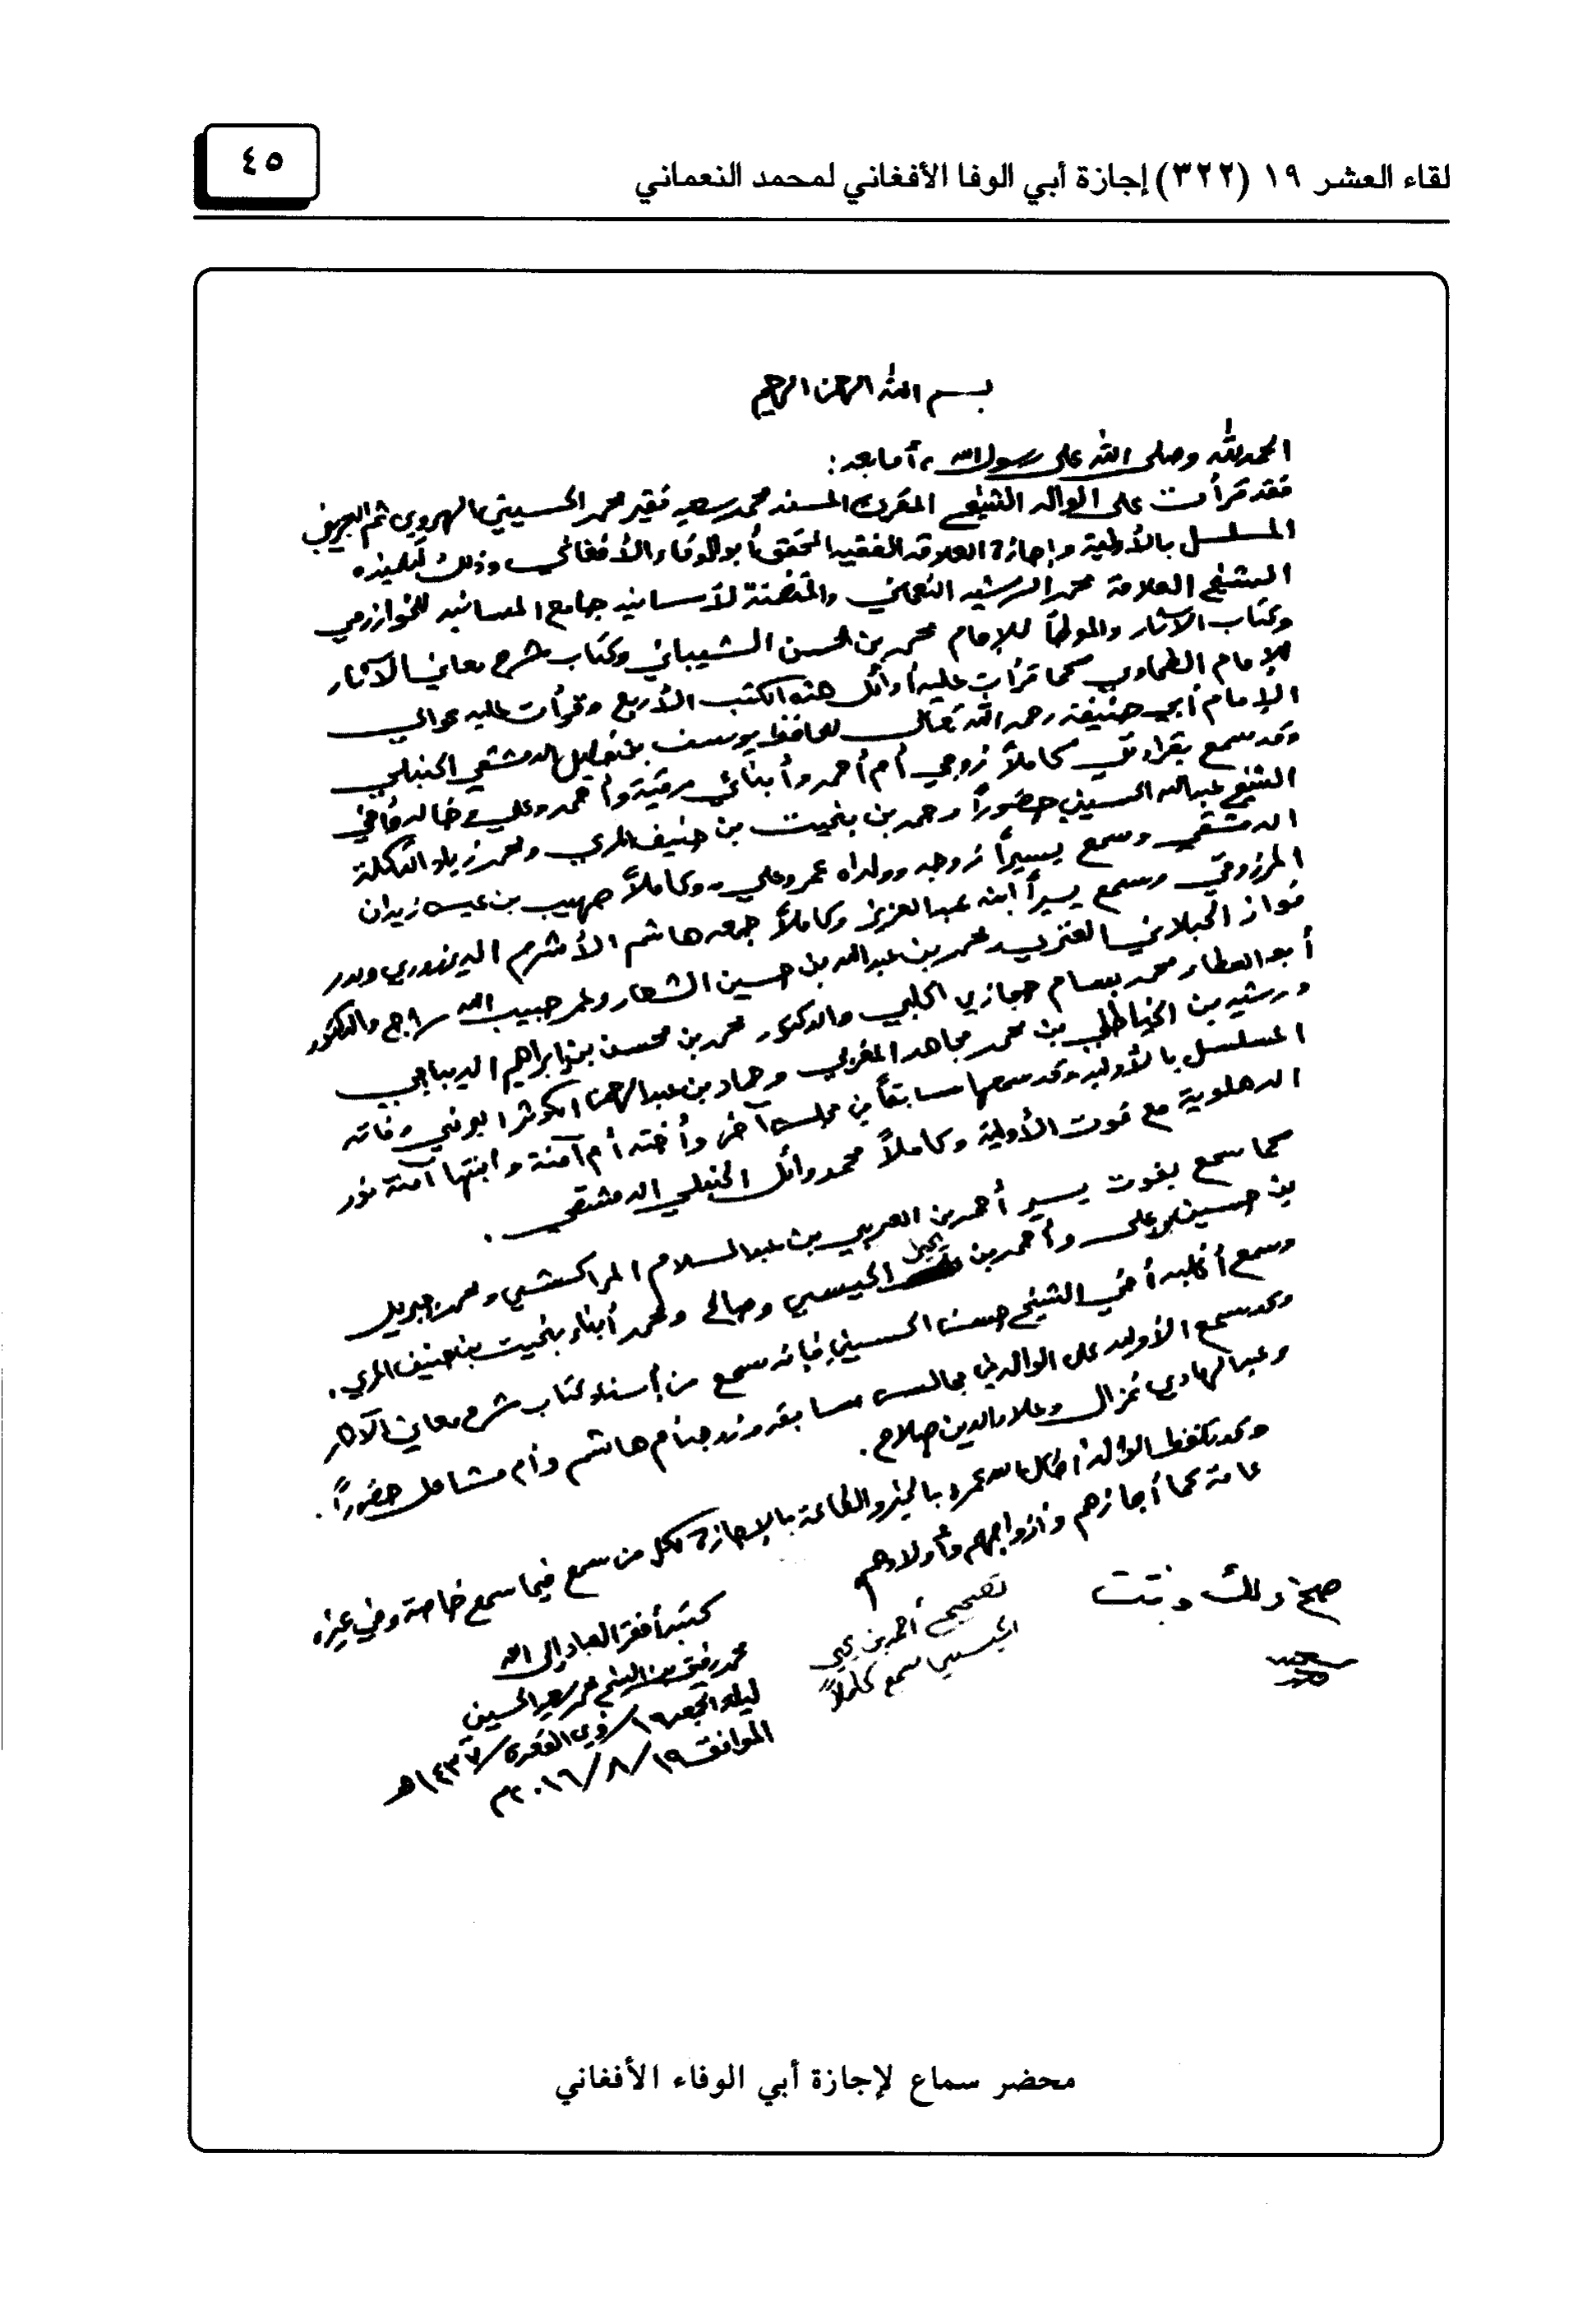 لقاء العشر ١٩ (٣٢٢) إجازة أبي الوفا الأفغاني لمحمد النعماني
٤٥
بسم الله الرحمن الرحيم
الحمد لله وصلى الله على رسول الله، أما بعد:
فقد قرأت على الوالد الشيخ المقرئ المسند محمد سعيد فقير محمد الحسيني الهروي ثم
المسلسل بالأولية وإجازة العلامة الفقيه المحقق أبو الوفاء الأفغاني وذلك لتلميذه
الشيخ العلامة محمد الرشيد النعماني والمتضمنة لأسانيد جامع المسانيد للخوارزمي
وكتاب الآثار والموطأ للإمام محمد بن الحسن الشيباني وكتاب شرح معاني الآثار
للإمام الطحاوي كما قرأت عليه أوائل هذه الكتب الأربع وقرأت عليه عوالي
الإمام أبي حنيفة رحمه الله تعالى للحافظ يوسف بن خليل الدمشقي الحنبلي
وقد سمع بقراءتي كاملاً زوجي أم أحمد وأبنائي رقية وأحمد وعلي خالد وأخي
الشيخ عبدالله الحسيني حضوراً ومحمد بن بخيت بن حنيف المري ومحمد زياد التكلة
الدمشقي وسمع يسيراً زوجه وولداه عمر وعلي، وكاملاً صهيب بن عيسى زيدان
المرزوقي وسمع يسيراً ابنه عبدالعزيز وكاملاً جمعه هاشم الأشرم الدينوري وبدر
فواز الجبلاني العنزي ومحمد بن عبدالله بن حسين الشعار وعمر حبيب الله راجح والدكتور
أبو العطار محمد بسام حجازي الحلبي والدكتور محمد بن محسن بن إبراهيم الديباجي
ورشيد بن بن محمد مجاهد المغربي وحماد بن عبدالرحمن الكوثر وفاته
المسلسل بالأولية وقد سمعها سابقاً في مجلس آخر وأخته أم آمنة وابنتها آمنة نور
الدهلوية مع فوت الأولية وكاملاً محمد وائل الحنبلي الدمشقي.
كما سمع بفوت يسير أحمد بن العربي بن عبدالسلام المراكشي ومحمد جبريل
بن حسين وأحمد بن يحيى الحيسي وصالح ومحمد أبناء بخيت بن حنيف المري.
وسمع أغلبه أخي الشيخ حسن الحسيني فإنه سمع من أسند كتاب شرح معاني الآثار
وقد سمع الأولية على الوالد في مجالس سابقة وزوجته أم هاشم وأم مشاعل حضوراً.
وعبدالهادي غزال وعلاء الدين صلاح.
وقد تلفظ الوالد أطال الله عمره بالخير والطاعة بالإجازة لكل من سمع فيما سمع خاصة وفي غيره
عامة كما أجازهم وأزواجهم وأولادهم
صح ذلك وثبت
تصحيح أحمد بن يحيى
الحيسي سمع كاملاً
كتبه أفقر العباد إلى الله
محمد رفيق بن الشيخ محمد سعيد الحسيني
ليلة الجمعة ١٦/ذي القعدة/١٤٣٧هـ
الموافق ١٩/٨/٢٠١٦م
محضر سماع لإجازة أبي الوفاء الأفغاني